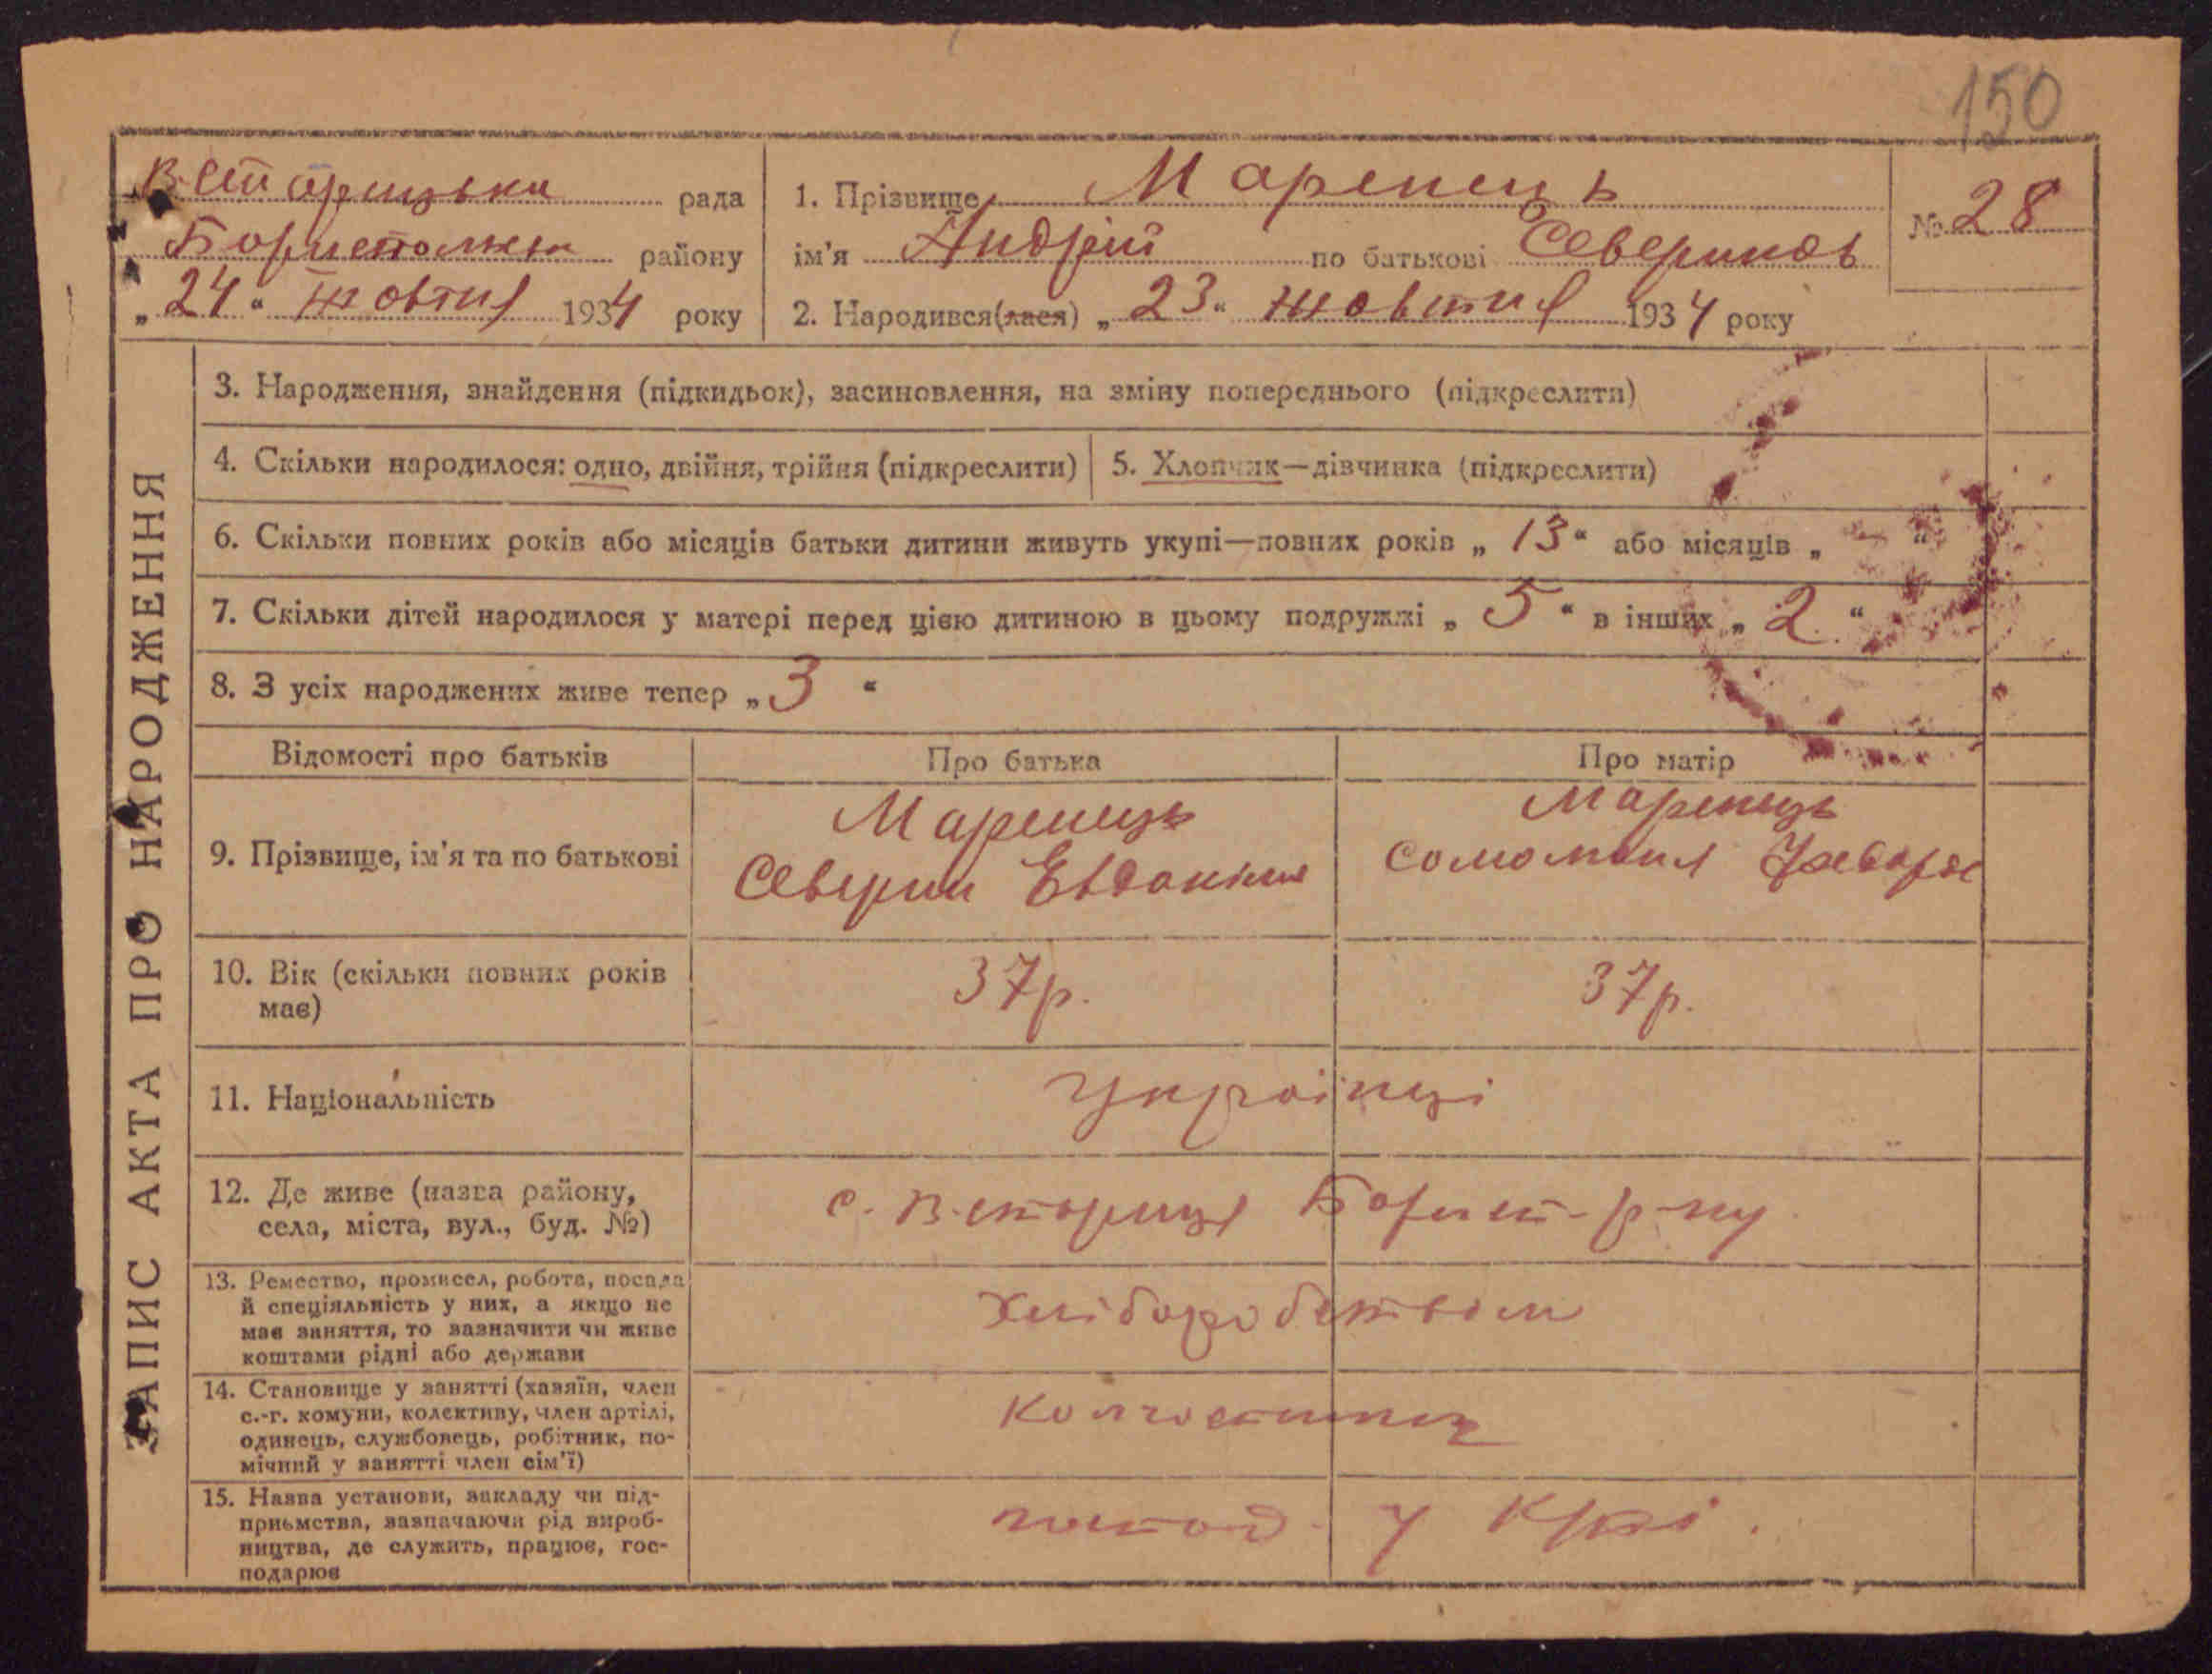 150
В. Старицька рада
Бориспольськ району
„24“ жовтня 1934 року
1. Прізвище Маренець
ім'я Андрій по батькові Северинов
№ 28
2. Народився(лася) „23“ жовтня 1934 року
ЗАПИС АКТА ПРО НАРОДЖЕННЯ
3. Народження, знайдення (підкидьок), засиновлення, на зміну попереднього (підкреслити)
4. Скільки народилося: одно, двійня, трійня (підкреслити)
5. Хлопчик—дівчинка (підкреслити)
6. Скільки повних років або місяців батьки дитини живуть укупі—повних років „13“ або місяців „ — “
7. Скільки дітей народилося у матері перед цією дитиною в цьому подружжі „5“ в інших „2“
8. З усіх народжених живе тепер „3“
Відомості про батьків
Про батька
Про матір
9. Прізвище, ім'я та по батькові
Маренець
Северин Евдоким
Маренець
Соломония Федор
10. Вік (скільки повних років
має)
37р.
37р.
11. Національність
Українці
12. Де живе (назва району,
села, міста, вул., буд. №)
с. В. Стариця Борисп-р-ну
13. Ремество, промисел, робота, посада
й спеціяльність у них, а якщо не
має заняття, то зазначити чи живе
коштами рідні або держави
Хліборобством
14. Становище у занятті (хазяїн, член
с.-г. комуни, колективу, член артілі,
одинець, службовець, робітник, по-
мічний у занятті член сім'ї)
Колгоспник
15. Назва установи, закладу чи під-
приьмства, зазначаючи рід вироб-
ництва, де служить, працює, гос-
подарює
господ. у